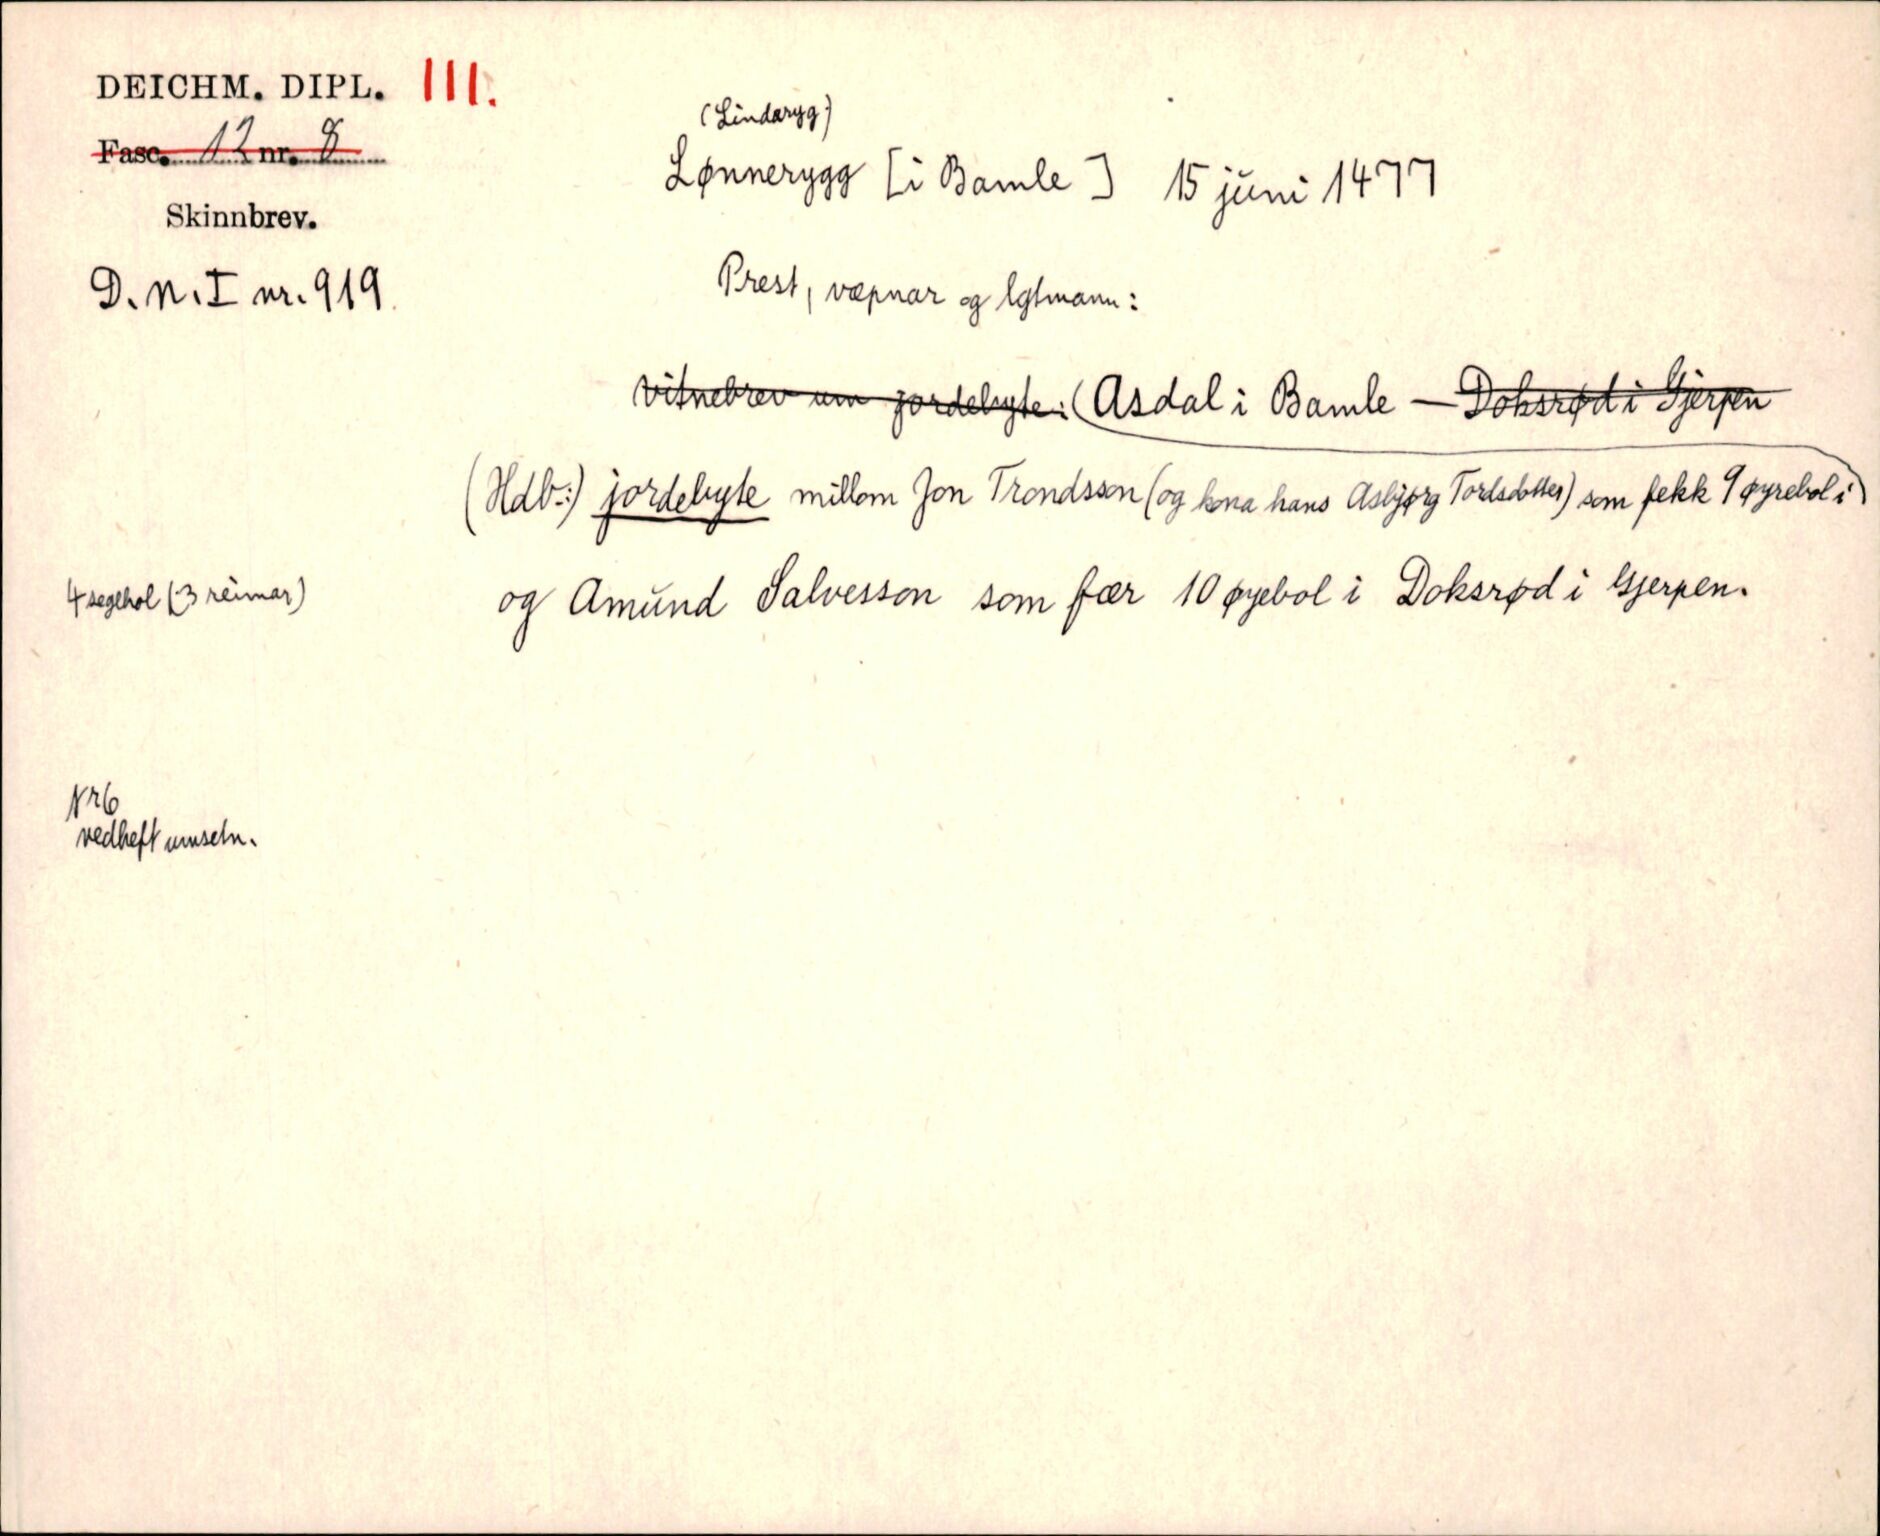 DEICHM. DIPL. 111.
Fasc. 12 nr. 8
Skinnbrev.
D.N.I nr. 919
(Lindaryg)
Lønnerygg [i Bamle] 15 juni 1477
Prest, væpnar og lgtmann:
Vitnebrev um jordebyte: (Asdal i Bamle — Doksrød i Gjerpen
(Hdb:) jordebyte millom Jon Trondsson (og kona hans Asbjørg Tordsdotter) som fekk 9 øyrebol i
og Amund Salvesson som fær 10 øyebol i Doksrød i Gjerpen.
4 segehol (3 reimar)
Nr 6
vedheft umsetn.